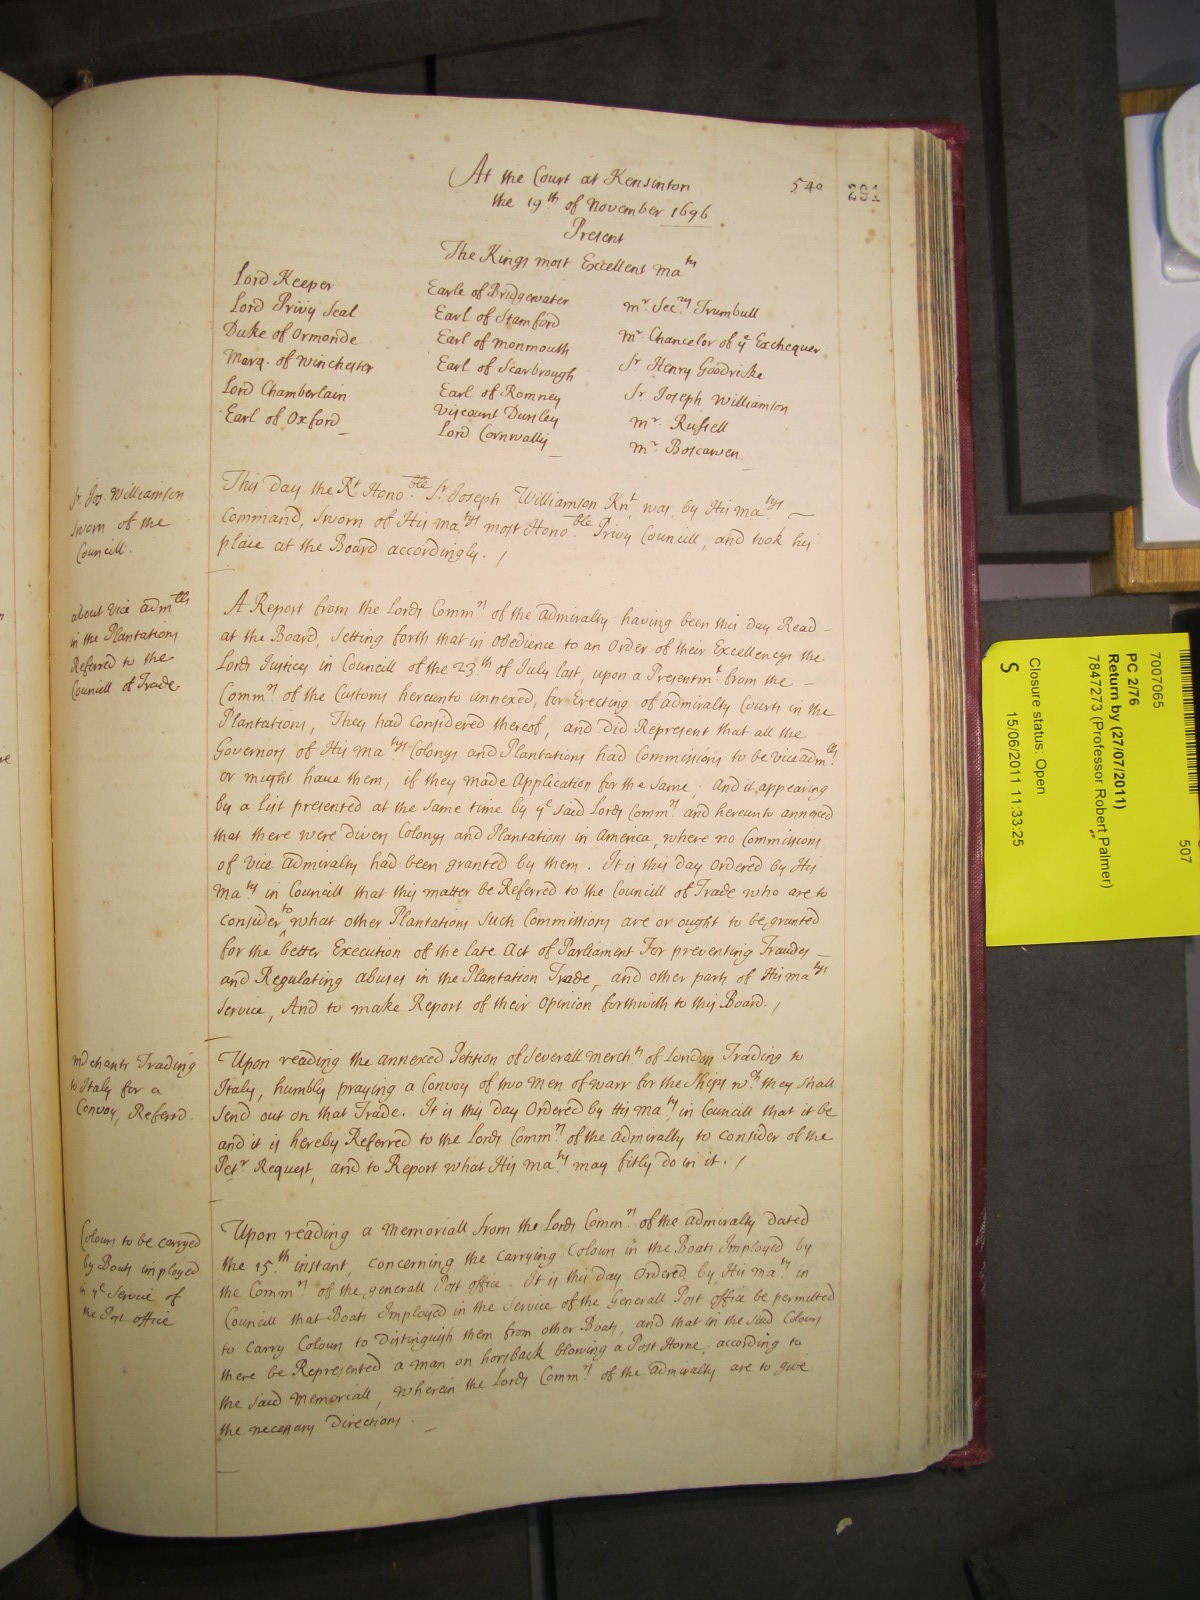 At the Court at Kensinton
the 19th of November 1696
540
291
Present
The Kings most Excellent Ma.ty
Lord Keeper
Lord Privy Seal
Duke of Ormonde
Marq. of Winchester
Lord Chamberlain
Earl of Oxford
Earle of Bridgewater
Earl of Stamford
Earl of Monmouth
Earl of Scarbrough
Earl of Romney
Viscount Dursley
Lord Cornwallis
Mr. Sec.ry Trumbull
Mr Chancelor of ye Exchequer
Sr. Henry Goodricke
Sr. Joseph Williamson
Mr. Russell
Mr. Boscawen
Sr. Jos. Williamson
sworn of the
Councill.
This day the Rt. Hono.ble Sr. Joseph Williamson Knt. was, by His Ma.tys
Command, Sworn of His Ma.tys most Hono.ble Privy Councill, and took his
place at the Board accordingly. /
about Vice Adm.lls
in the Plantations
Referred to the
Councill of Trade
A Report from the Lords Comm.rs of the Admiralty having been this day Read
at the Board, setting forth that in obedience to an Order of their Excellencys the
Lords Justices in Councill of the 23.th of July last, upon a Presentm.t from the
Comm.rs of the Customs hereunto annexed, for Erecting of Admiralty Courts in the
Plantations, They had Considered thereof, and did Represent that all the
Governors of His Ma.tys Colonys and Plantations had Commissions to be Vice Adm.lls
or might have them, if they made Application for the same; And it appearing
by a List presented at the same time by ye said Lords Comm.rs and hereunto annexed
that there were divers Colonys and Plantations in America, where no Commissions
of Vice Admiralty had been granted by them. It is this day Ordered by His
Ma.ty in Councill that this matter be Referred to the Councill of Trade who are to
consider to what other Plantations such Commissions are or ought to be granted
for the better Execution of the late Act of Parliament For preventing Frauds
and Regulating abuses in the Plantation Trade, and other parts of His Ma.tys
Service, And to make Report of their Opinion forthwith to this Board. /
Merchants Trading
to Italy for a
Convoy, Referrd.
Upon reading the annexed Petition of Severall Merch.ts of London Trading to
Italy, humbly praying a Convoy of two Men of Warr for the Ships wch. they shall
send out on that Trade. It is this day Ordered by His Ma.ty in Councill that it be
and it is hereby Referred to the Lords Comm.rs of the Admiralty to consider of the
Pet.rs Request, and to Report what His Ma.ty may fitly do in it. /
Colours to be carryed
by Boats imployed
in ye Service of
the Post office
Upon reading a Memoriall from the Lords Comm.rs of the Admiralty dated
the 15.th instant, concerning the carrying Colours in the Boats Imployed by
the Comm.rs of the generall Post office. It is this day Ordered by His Ma.ty in
Councill that Boats Imployed in the Service of the Generall Post office be permitted
to carry Colours to Distinguish them from other Boats, and that in the said Colours
there be Represented a man on horsback blowing a Post Horne, according to
the said Memoriall, wherein the Lords Comm.rs of the Admiralty are to give
the necessary Directions.
507
7007065
PC 2/76
Return by (27/07/2011)
7847273 (Professor Robert Palmer)
Closure status: Open
15/06/2011 11:33:25
S